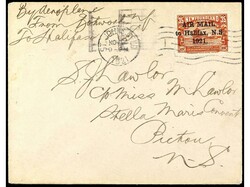 By Aeroplane
From Botwood Nfd
To Halifax
NEWFOUNDLAND
35
AIR MAIL
to Halifax, N.S.
1921.
S J Lawlor
c/o Miss M Lawlor
Stella Maris Convent
Pictou
N.S.